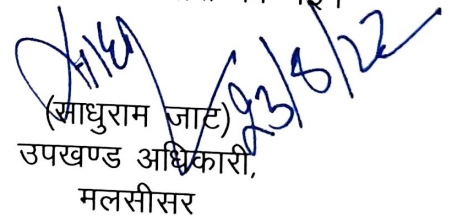 23/8/22
(साधुराम जाट)
उपखण्ड अधिकारी,
मलसीसर